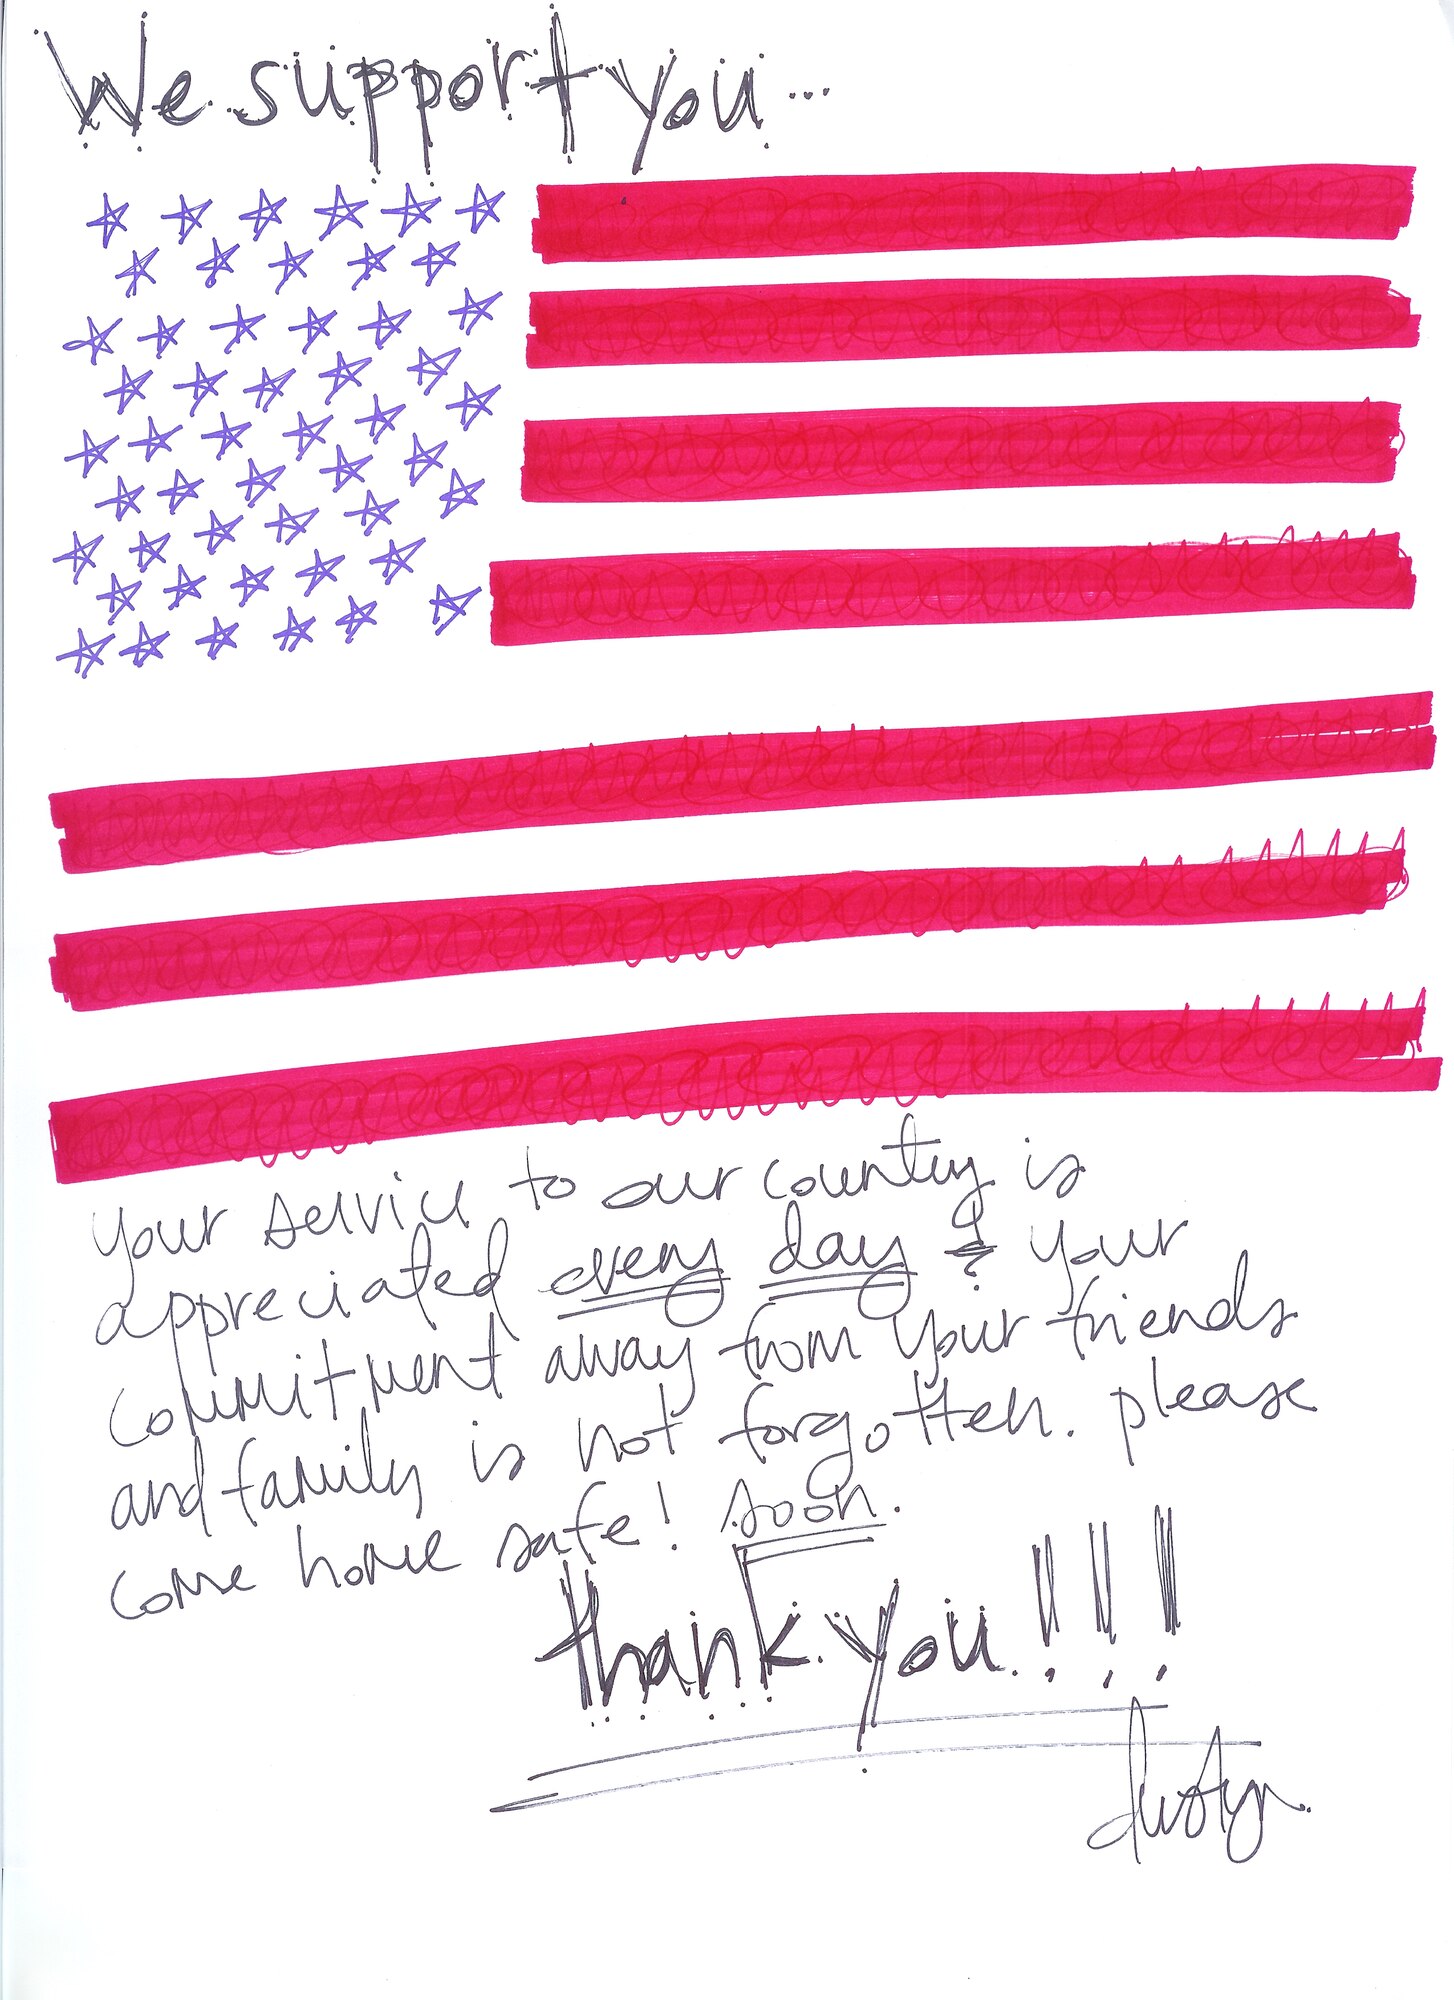 We support you...
your service to our country is
appreciated every day & your
commitment away from your friends
and family is not forgotten. please
come home safe! soon.
thank you!!!
dustyn